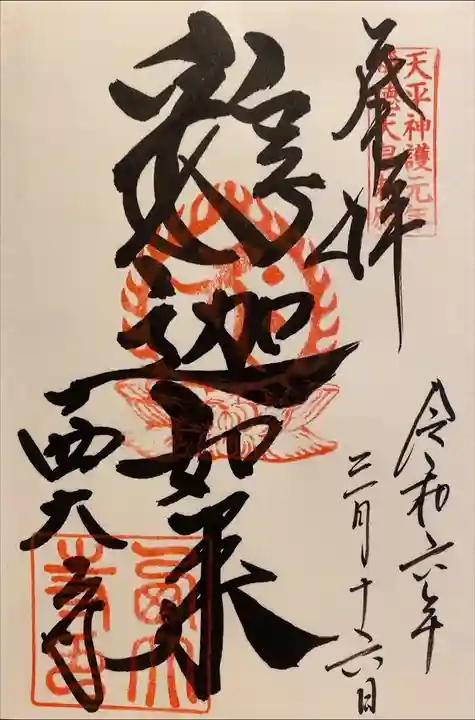 奉拝
天平神護元年
徳天皇
釋迦如来
西大寺
令和六年
三月十六日